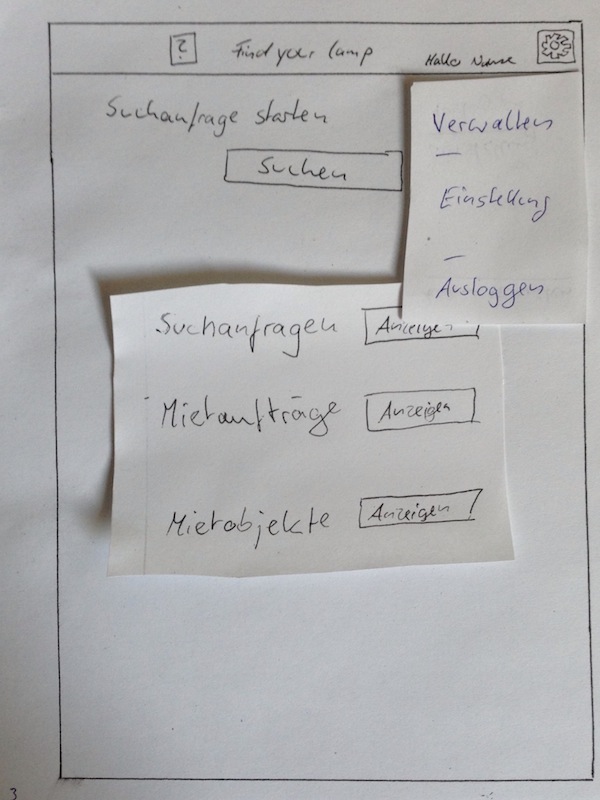 ?
Find your lamp
Hallo
Suchanfrage starten
Suchen
Verwalten
Einstellung
Ausloggen
Suchanfragen
Anzeigen
Mietaufträge
Anzeigen
Mietobjekte
Anzeigen
3